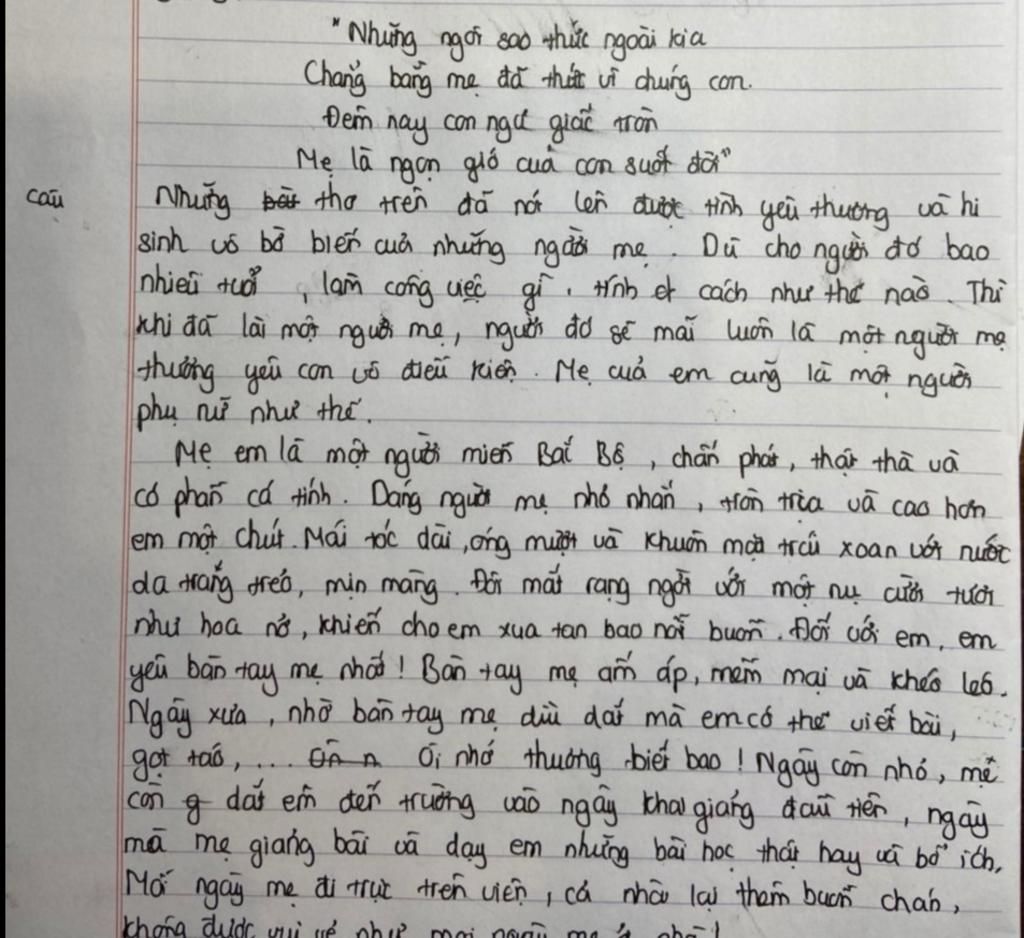 "Những ngôi sao thức ngoài kia
Chẳng bằng mẹ đã thức vì chúng con.
Đêm nay con ngủ giấc tròn
Mẹ là ngọn gió của con suốt đời"
câu
Những bài thơ trên đã nói lên được tình yêu thương và hi
sinh vô bờ bến của những người mẹ. Dù cho người đó bao
nhiêu tuổi, làm công việc gì, tính cách như thế nào. Thì
khi đã là một người mẹ, người đó sẽ mãi luôn là một người mẹ
thương yêu con vô điều kiện. Mẹ của em cũng là một người
phụ nữ như thế.
Mẹ em là một người miền Bắc Bộ, chân phát, thật thà và
có phần cá tính. Dáng người mẹ nhỏ nhắn, tròn trịa và cao hơn
em một chút. Mái tóc dài, óng mượt và khuôn mặt trái xoan với nước
da trắng trẻo, mịn màng. Đôi mắt rạng ngời với một nụ cười tươi
như hoa nở, khiến cho em xua tan bao nỗi buồn. Đối với em, em
yêu bàn tay mẹ nhất! Bàn tay mẹ ấm áp, mềm mại và khéo léo.
Ngày xưa, nhờ bàn tay mẹ dìu dắt mà em có thể viết bài,
gọt táo, ... Ôi nhớ thương biết bao! Ngày còn nhỏ, mẹ
còn dắt em đến trường vào ngày khai giảng đầu tiên, ngày
mà mẹ giảng bài và dạy em những bài học thật hay và bổ ích.
Mỗi ngày mẹ đi trực trên viện, cả nhà lại thêm buồn chán,
không được vui vẻ như mọi ngày mẹ ở nhà!